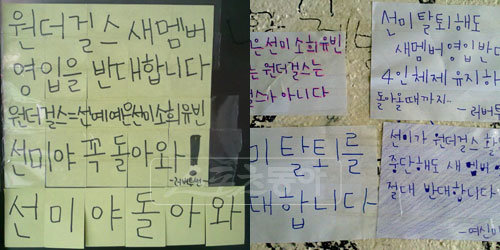 원더걸스 새멤버
영입을 반대합니다
원더걸스=선예예은선미소희유빈
선미야 꼭 돌아와!
-러버툰반-
선미야돌아와
은선미소희유빈
는 원더걸스는
걸스가 아니다
선미탈퇴해도
새멤버 영입반대
4인체제 유지하
돌아올때까지..
미 탈퇴를
대합니다
선미가 원더걸스 화
중단해도 새 멤버
절대 반대합니다
-여신미